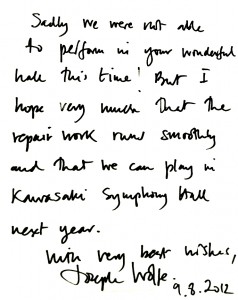 Sadly we were not able
to perform in your wonderful
hall this time! But I
hope very much that the
repair work runs smoothly
and that we can play in
Kawasaki Symphony Hall
next year.
With very best wishes,
Joseph Wolfe.
9.8.2012